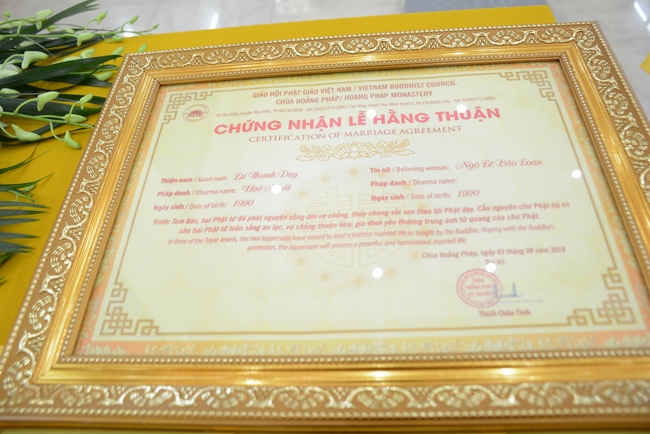 GIÁO HỘI PHẬT GIÁO VIỆT NAM / VIETNAM BUDDHIST COUNCIL
CHÙA HOẰNG PHÁP/ HOANG PHAP MONASTERY
CHỨNG NHẬN LỄ HẰNG THUẬN
CERTIFICATION OF MARRIAGE AGREEMENT
Thiện nam / Good man: Lư Thanh Duy Tín nữ / Believing woman: Ngô Lê Bảo Loan
Pháp danh / Dharma name: Huệ Pháp danh / Dharma name:
Ngày sinh / Date of birth: 1990 Ngày sinh / Date of birth: 1990
Trước Tam Bảo, hai Phật tử đã phát nguyện sống đời vợ chồng, thủy chung sắt son theo lời Phật dạy. Cầu nguyện chư Phật hộ trì
cho hai Phật tử luôn sống an lạc, vợ chồng thuận hòa, gia đình yêu thương trong ánh từ quang của chư Phật.
In front of the Triple Jewels, the two laypersons have vowed to lead a faithful married life as taught by the Buddha. Praying with the Buddha's
protection, the laypersons will possess a peaceful and harmonious married life.
Chùa Hoằng Pháp, ngày 03 tháng 08 năm 2018
Trụ trì,
Thích Chân Tính